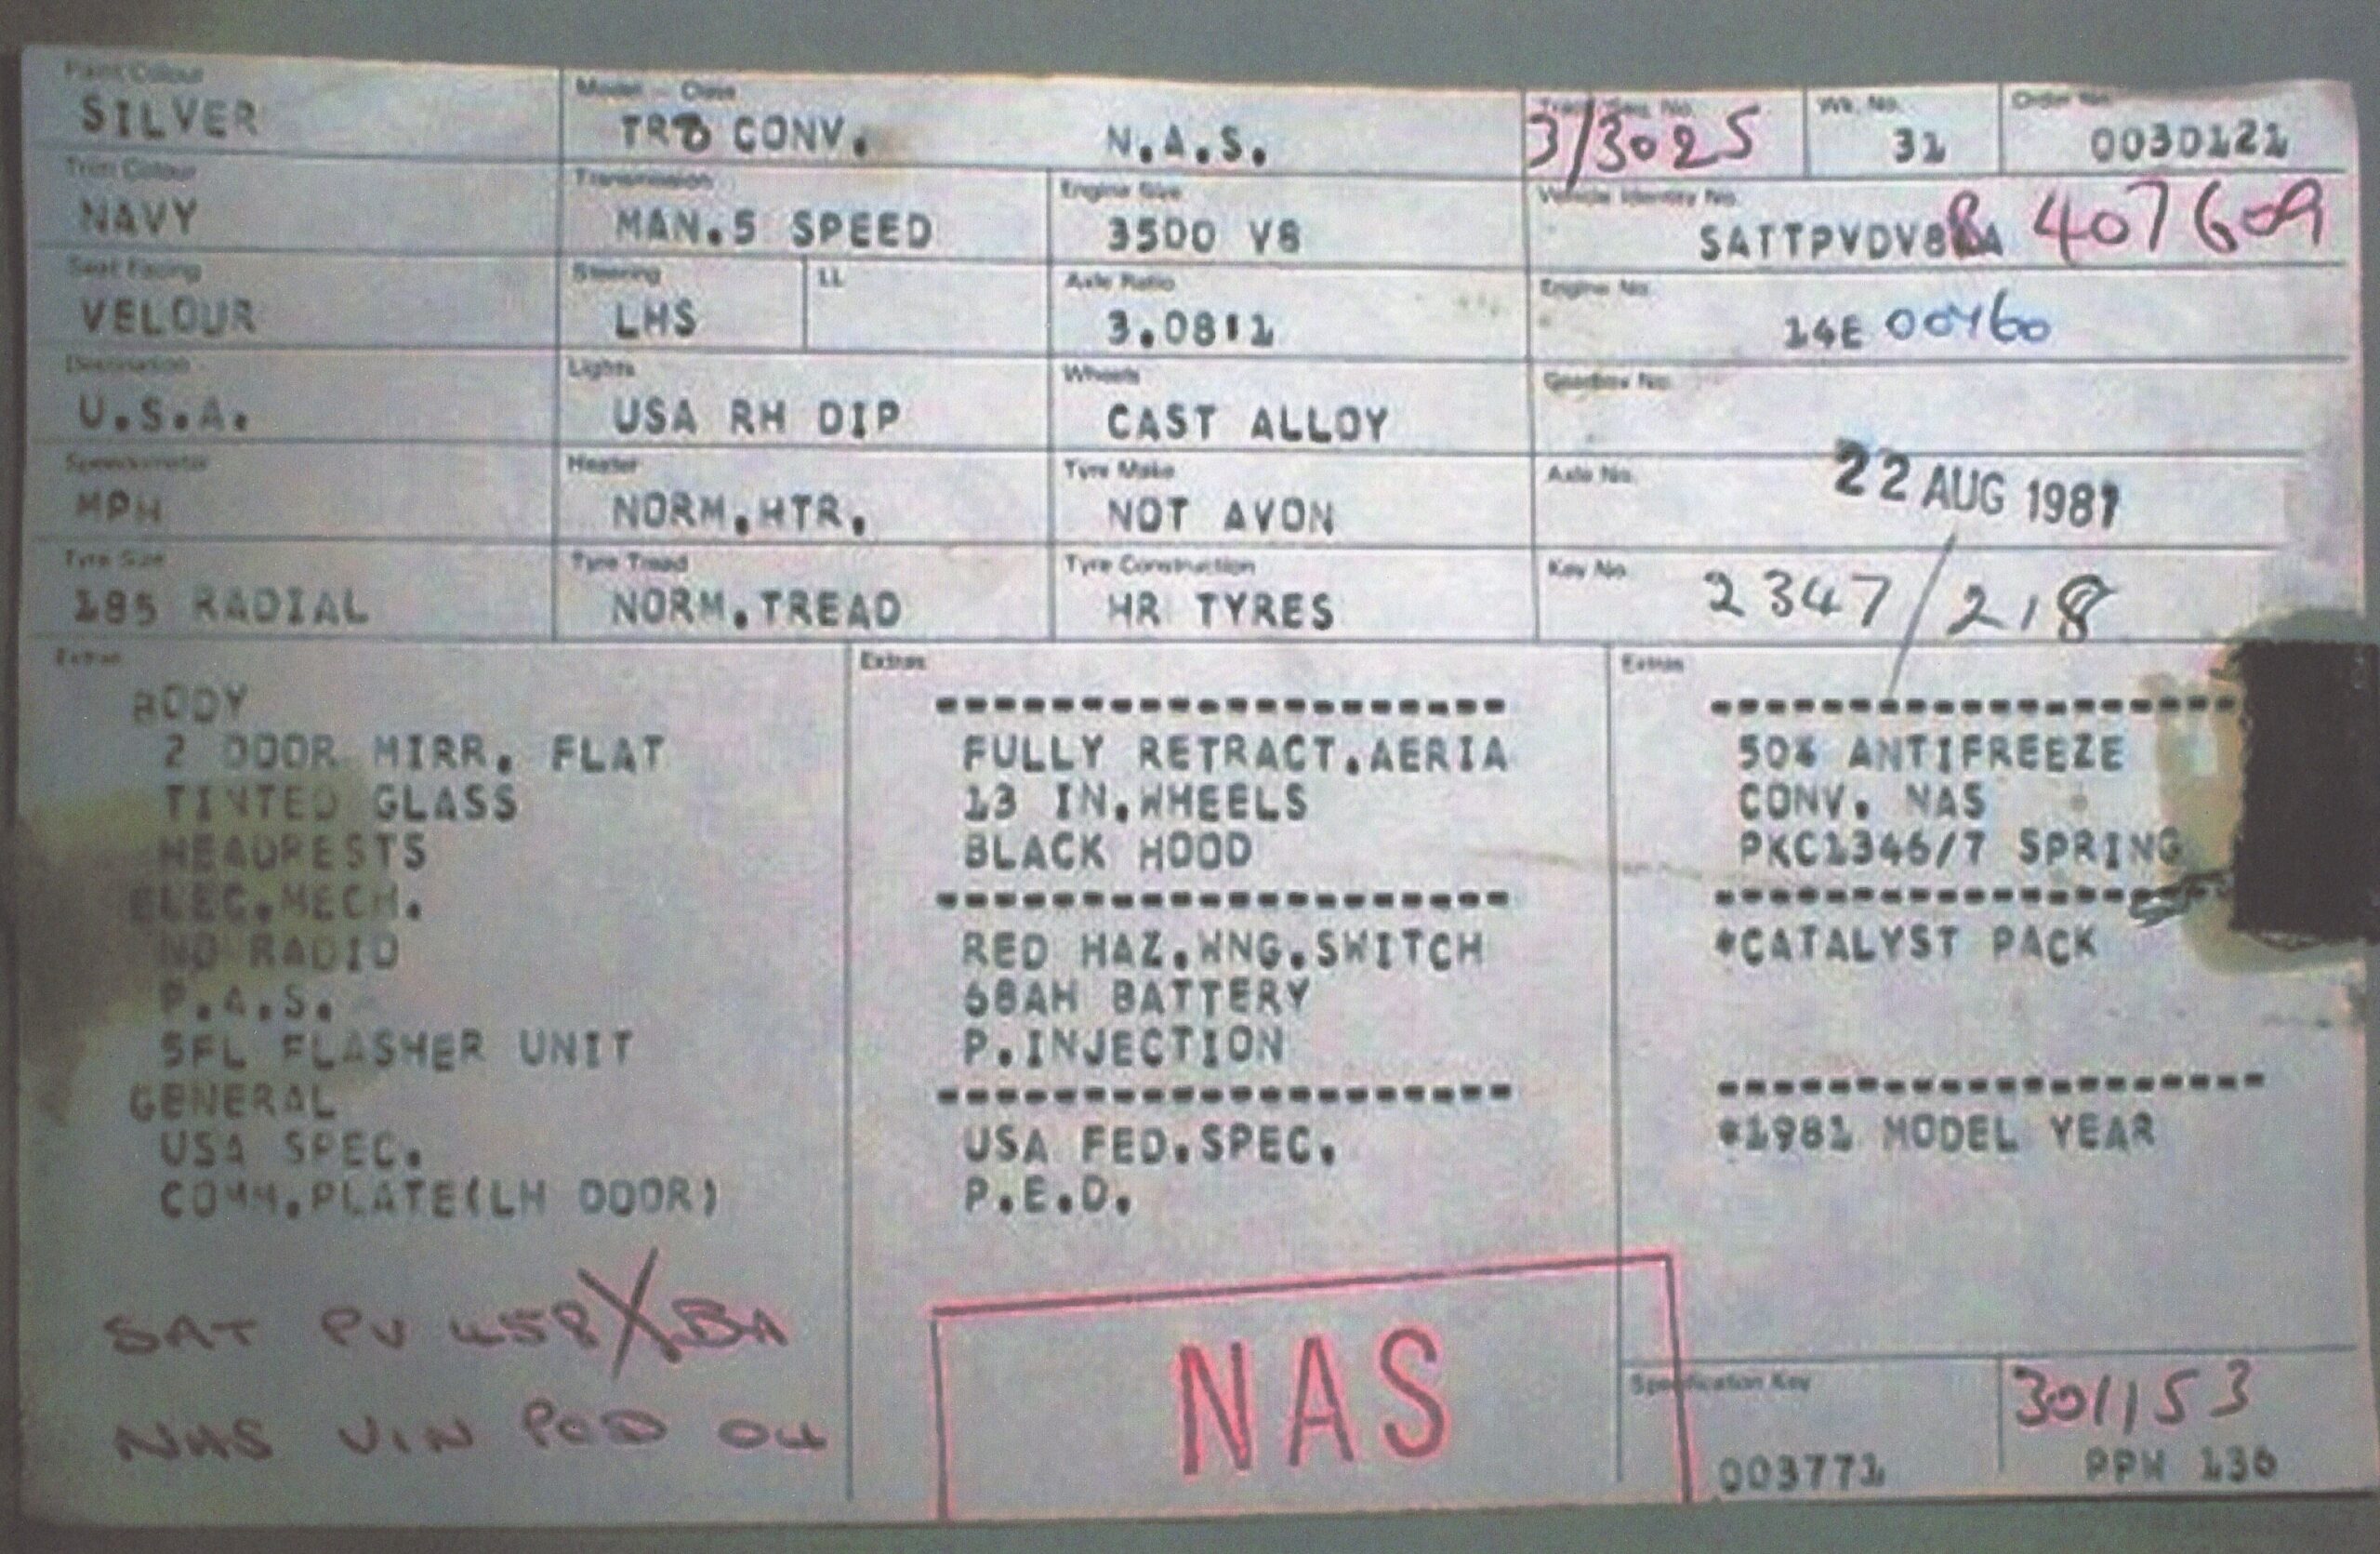 Paint Colour
SILVER
Model - Class
TR8 CONV. N.A.S.
Trim Seq. No.
3/3025
Wk. No.
31
Order No.
0030121
Trim Colour
NAVY
Transmission
MAN.5 SPEED
Engine Size
3500 V8
Vehicle Identity No.
SATTPVDV8BA 407609
Seat Facing
VELOUR
Steering
LHS
LL
Axle Ratio
3.08:1
Engine No.
14E 00460
Destination
U.S.A.
Lights
USA RH DIP
Wheels
CAST ALLOY
Gearbox No.
Speedometer
MPH
Heater
NORM.HTR.
Tyre Make
NOT AVON
Axle No.
22 AUG 1981
Tyre Size
185 RADIAL
Tyre Tread
NORM.TREAD
Tyre Construction
HR TYRES
Key No.
2347/218
Extras
BODY
2 DOOR MIRR. FLAT
TINTED GLASS
HEADRESTS
ELEC.MECH.
NO RADIO
P.A.S.
SFL FLASHER UNIT
GENERAL
USA SPEC.
COMM.PLATE(LH DOOR)
SAT PV 458 X BA
NAS VIN POD 04
Extras
FULLY RETRACT.AERIA
13 IN.WHEELS
BLACK HOOD
RED HAZ.WNG.SWITCH
68AH BATTERY
P.INJECTION
USA FED.SPEC.
P.E.D.
NAS
Extras
50% ANTIFREEZE
CONV. NAS
PKC1346/7 SPRING
*CATALYST PACK
*1981 MODEL YEAR
Specification Key
003771
301153
PPW 136